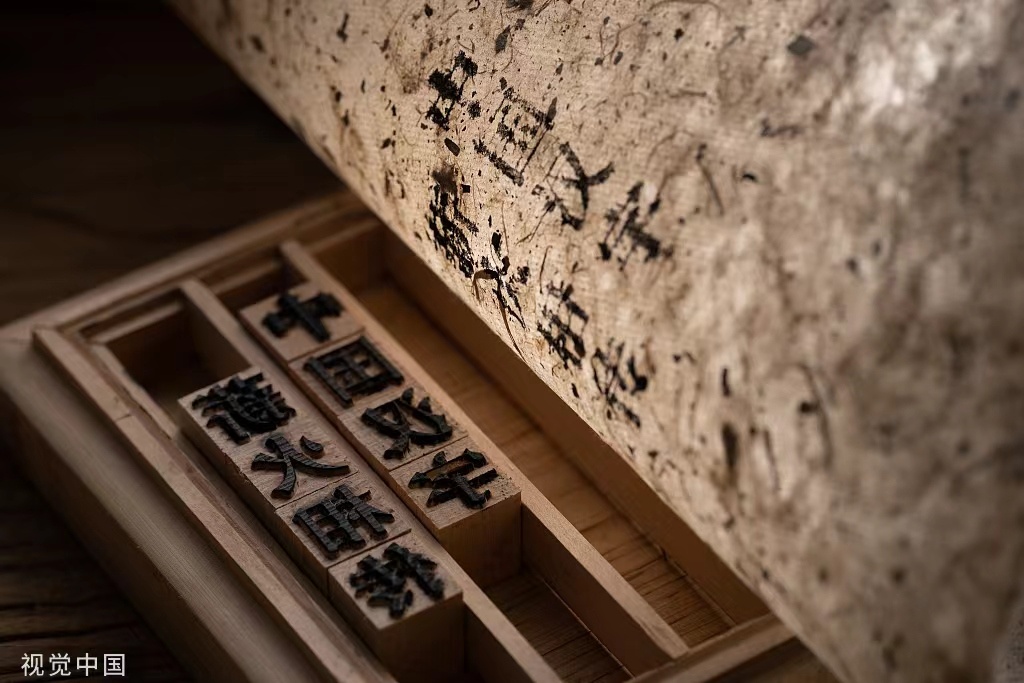 中国汉字
薪火相传
中国汉字
薪火相传
视觉中国